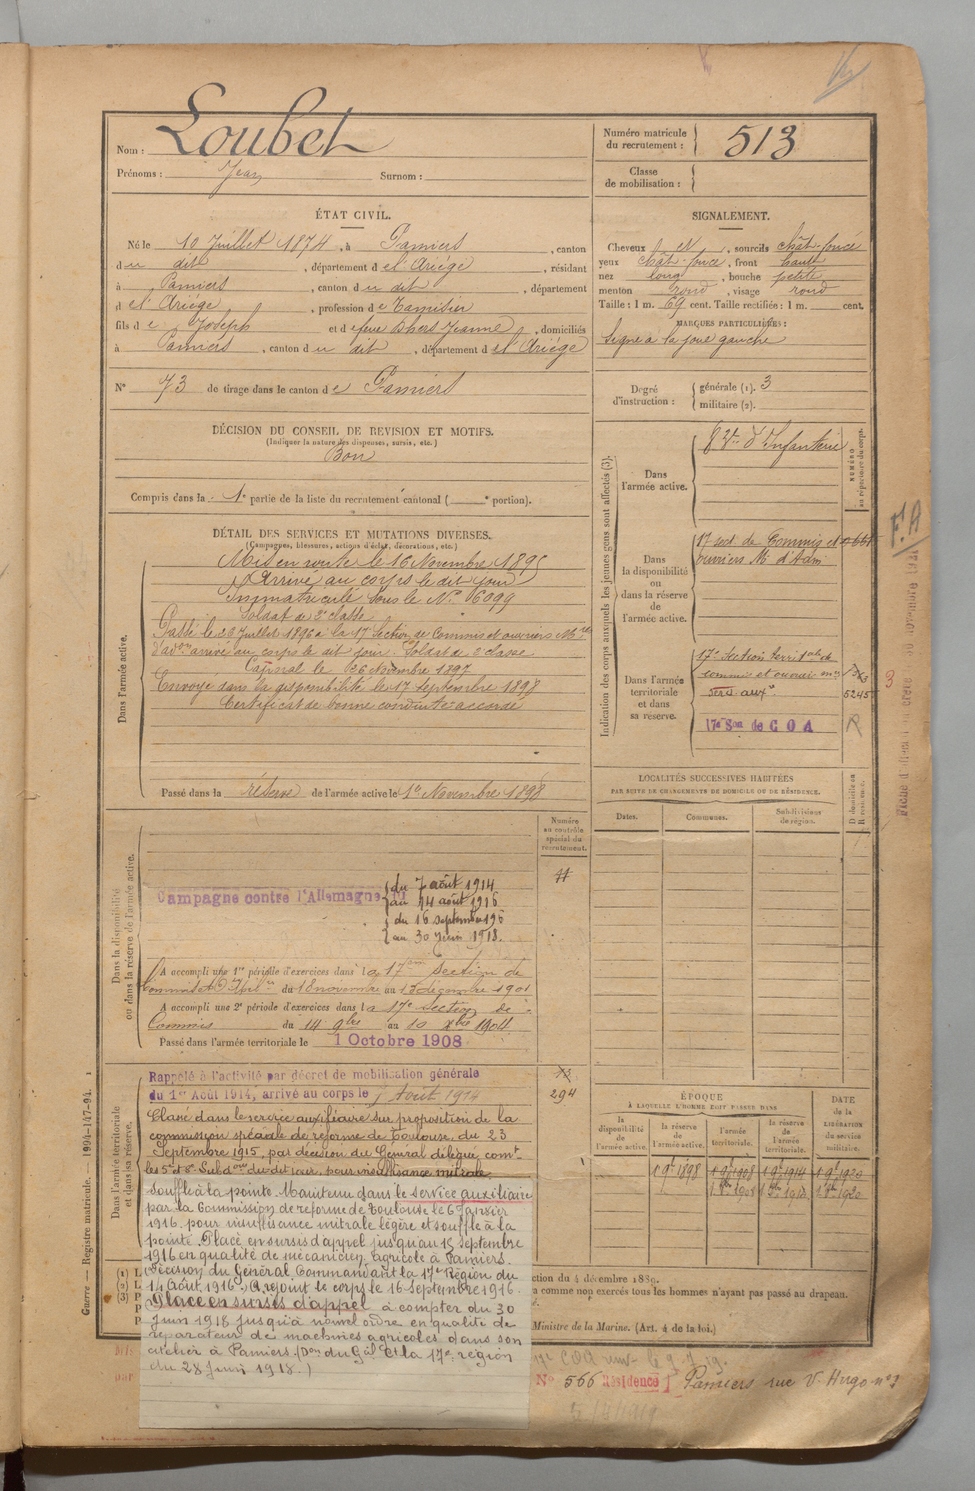 Nom : Loubet
Prénoms : Jean Surnom :
Numéro matricule
du recrutement : 513
Classe
de mobilisation :
ÉTAT CIVIL.
Né le 10 Juillet 1874, à Pamiers, canton
du dit, département de l'Ariège, résidant
à Pamiers, canton du dit, département
de l'Ariège, profession de
fils de Joseph et de feue Jeanne, domiciliés
à Pamiers, canton du dit, département de l'Ariège
N° 73 de tirage dans le canton de Pamiers
DÉCISION DU CONSEIL DE REVISION ET MOTIFS.
(Indiquer la nature des dispenses, sursis, etc.)
Bon
Compris dans la 1e partie de la liste du recrutement cantonal ( e portion).
SIGNALEMENT.
Cheveux et, sourcils chât-foncé
yeux chât-foncé, front haut
nez long, bouche petite
menton rond, visage rond
Taille : 1 m. 69 cent. Taille rectifiée : 1 m. cent.
MARQUES PARTICULIÈRES :
Signe à la joue gauche
Degré
d'instruction :
générale (1). 3
militaire (2).
DÉTAIL DES SERVICES ET MUTATIONS DIVERSES.
(Campagnes, blessures, actions d'éclat, décorations, etc.)
Dans l'armée active.
Mis en route le 16 Novembre 1895
Arrivé au corps le dit jour
Immatriculé sous le N° 6099
Soldat de 2e classe
Passé le 26 Juillet 1896 à la 17e Section de Commis et ouvriers Mres
d'adon arrivé au corps le dit jour. Soldat de 2e classe
Caporal le 26 Novembre 1897
Envoyé dans la disponibilité le 17 Septembre 1898
Certificat de bonne conduite accordé
Passé dans la réserve de l'armée active le 1er Novembre 1898
Indication des corps auxquels les jeunes gens sont affectés (3).
NUMÉRO
au répertoire du corps.
Dans
l'armée active.
d'Infanterie
Dans
la disponibilité
ou
dans la réserve
de
l'armée active.
17 sect. de Commis et
ouvriers M d'Adm
Dans l'armée
territoriale
et dans
sa réserve.
17e Section territale de
commis et ouvriers
serv auxre
5245
17e Son de C O A
R
F.A
3
LOCALITÉS SUCCESSIVES HABITÉES
PAR SUITE DE CHANGEMENTS DE DOMICILE OU DE RÉSIDENCE.
Dates.
Communes.
Subdivisions
de région.
D domicile ou
R résidence.
Dans la disponibilité
ou dans la réserve de l'armée active.
Numéro
au contrôle
spécial du
recrutement.
Campagne contre l'Allemagne
du 7 août 1914
au 14 août 1916
du 16 septembre 1916
au 30 Juin 1918.
A accompli une 1re période d'exercices dans la 17me section de
Commis et du 18 novembre au 15 décembre 1901
A accompli une 2e période d'exercices dans la 17e section de
Commis du 14 9bre au 10 Xbre 1904
Passé dans l'armée territoriale le 1 Octobre 1908
Dans l'armée territoriale
et dans sa réserve.
Rappelé à l'activité par décret de mobilisation générale
du 1er Août 1914, arrivé au corps le 7 Août 1914
294
Classé dans le service auxiliaire sur proposition de la
commission spéciale de réforme de Toulouse, du 23
Septembre 1915, par décision du Général délégué comt
les 5e et 8e Subdons du dit jour, pour insuffisance mitrale
souffle à la pointe. Maintenu dans le service auxiliaire
par la Commission de réforme de Toulouse le 6 Janvier
1916. pour insuffisance mitrale légère et souffle à la
pointe. Placé en sursis d'appel jusqu'au 15 septembre
1916 en qualité de mécanicien agricole à Pamiers.
(Décision du Général Commandant la 17e Région du
14 Août 1916.) A rejoint le corps le 16 Septembre 1916.
Placé en sursis d'appel à compter du 30
Juin 1918 jusqu'à nouvel ordre en qualité de
réparateur de machines agricoles dans son
atelier à Pamiers. (Don du Gal Ct la 17e région
du 28 Juin 1918.)
ÉPOQUE
À LAQUELLE L'HOMME DOIT PASSER DANS
la
disponibilité
de
l'armée active.
la réserve
de
l'armée active.
l'armée
territoriale.
la réserve
de
l'armée
territoriale.
DATE
de la
LIBÉRATION
du service
militaire.
(1) L
(2) L
(3) P
ction du 4 décembre 1889.
a comme non exercés tous les hommes n'ayant pas passé au drapeau.
Ministre de la Marine. (Art. 4 de la loi.)
N° 566 Résidence Pamiers rue V. Hugo n° 3
par
Guerre. — Registre matricule. — 1994-147-94.